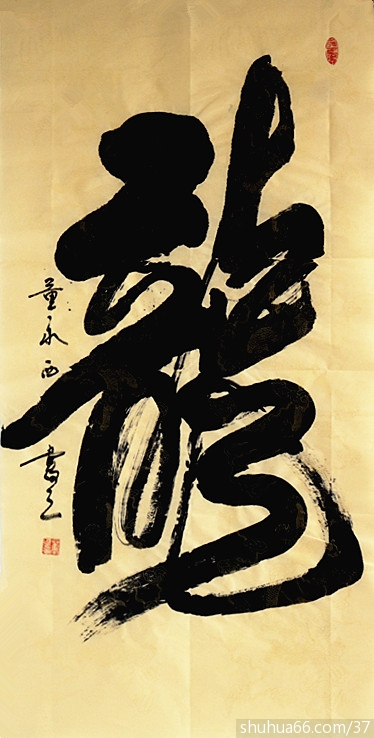 龍
董永西
書之
shuhua66.com/37